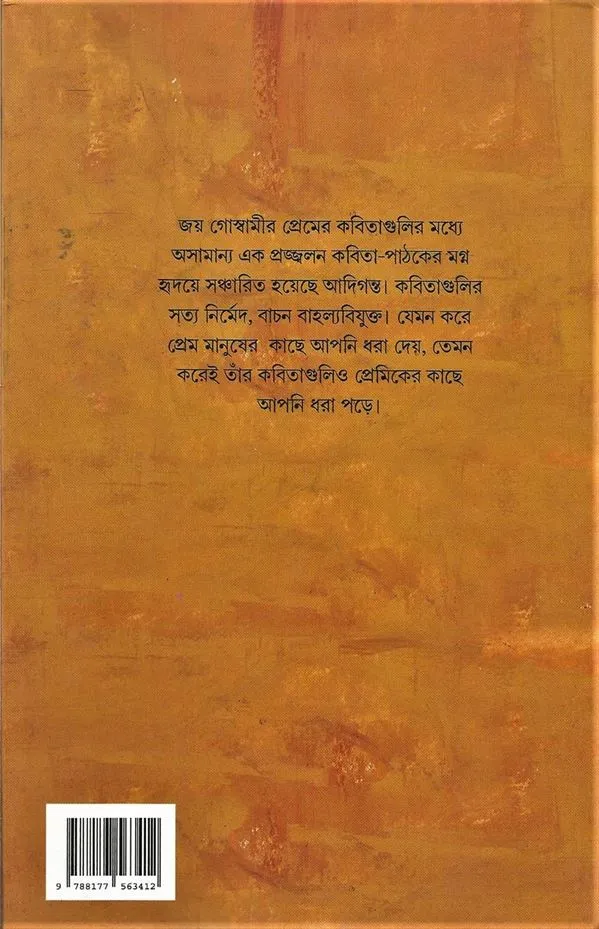 জয় গোস্বামীর প্রেমের কবিতাগুলির মধ্যে
অসামান্য এক প্রজ্জ্বলন কবিতা-পাঠকের মগ্ন
হৃদয়ে সঞ্চারিত হয়েছে আদিগন্ত। কবিতাগুলির
সত্য নির্মেদ, বাচন বাহুল্যবিযুক্ত। যেমন করে
প্রেম মানুষের কাছে আপনি ধরা দেয়, তেমন
করেই তাঁর কবিতাগুলিও প্রেমিকের কাছে
আপনি ধরা পড়ে।
9 788177 563412